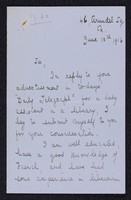 46 Arundel Sq
June 19th 1916
Sir,
In reply to your
advertisement in to-days
"Daily Telegraph" for a lady
assistant in a library, I
beg to submit myself to you
for your consideration.
I am well educated,
have a good knowledge of
French and have had
some experience in librarian